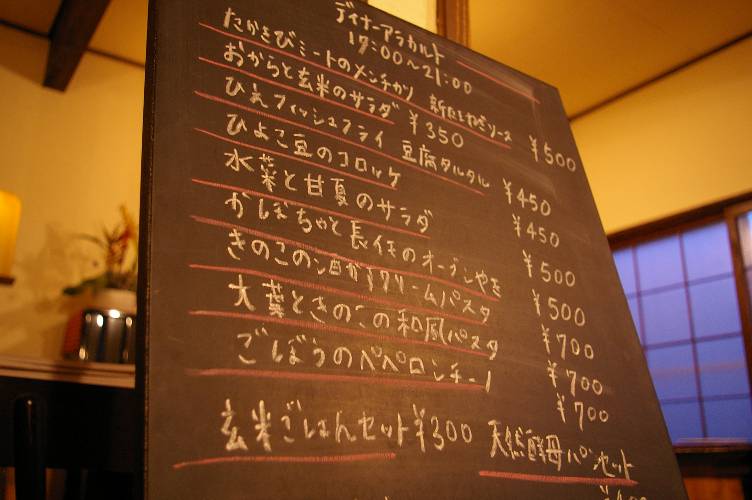 ディナーアラカルト
17:00〜21:00
たかきびミートのメンチカツ 新たまねぎソース ¥500
おからと玄米のサラダ ¥350
ひえフィッシュフライ 豆腐タルタル ¥450
ひよこ豆のコロッケ ¥450
水菜と甘夏のサラダ ¥500
かぼちゃと長芋のオーブンやき ¥500
きのこの酒かすクリームパスタ ¥700
大葉ときのこの和風パスタ ¥700
ごぼうのペペロンチーノ ¥700
玄米ごはんセット ¥300 天然酵母パンセット